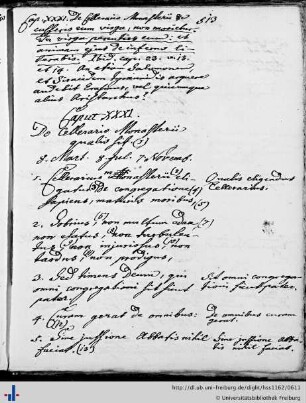 Cap. XXXI. De Cellerario Monasterii &c. 513
cusseris eum virga, non morietur.
Tu virga percuties eum: et
animam ejus de inferno li-
berabis. Ibid. cap. 23. v. 13.
et 14.
Caput XXXI.
De Cellerario Monasterii
qualis sit (1)
8. Mart. 8. Jul. 7. Novemb.
1. Cellerarius Monasterii eli-
gatur de congregatione (4)
sapiens, maturis moribus, (5)
Qualis eligendus
Cellerarius.
2. Sobrius, (6) non multum edax (7)
non elatus, non turbulen-
tus, non injuriosus, non
tardus, non prodigus,
3. Sed timens Deum, qui
omni congregationi sit sicut
pater.
Sit omni congrega-
tioni sicut pater.
4. Curam gerat de omnibus:
De omnibus curam
gerat.
5. Sine jussione Abbatis nihil
faciat.
Sine jussione Abba-
tis nihil faciat.
http://dl.ub.uni-freiburg.de/diglit/hss1167/0611
© Universitätsbibliothek Freiburg